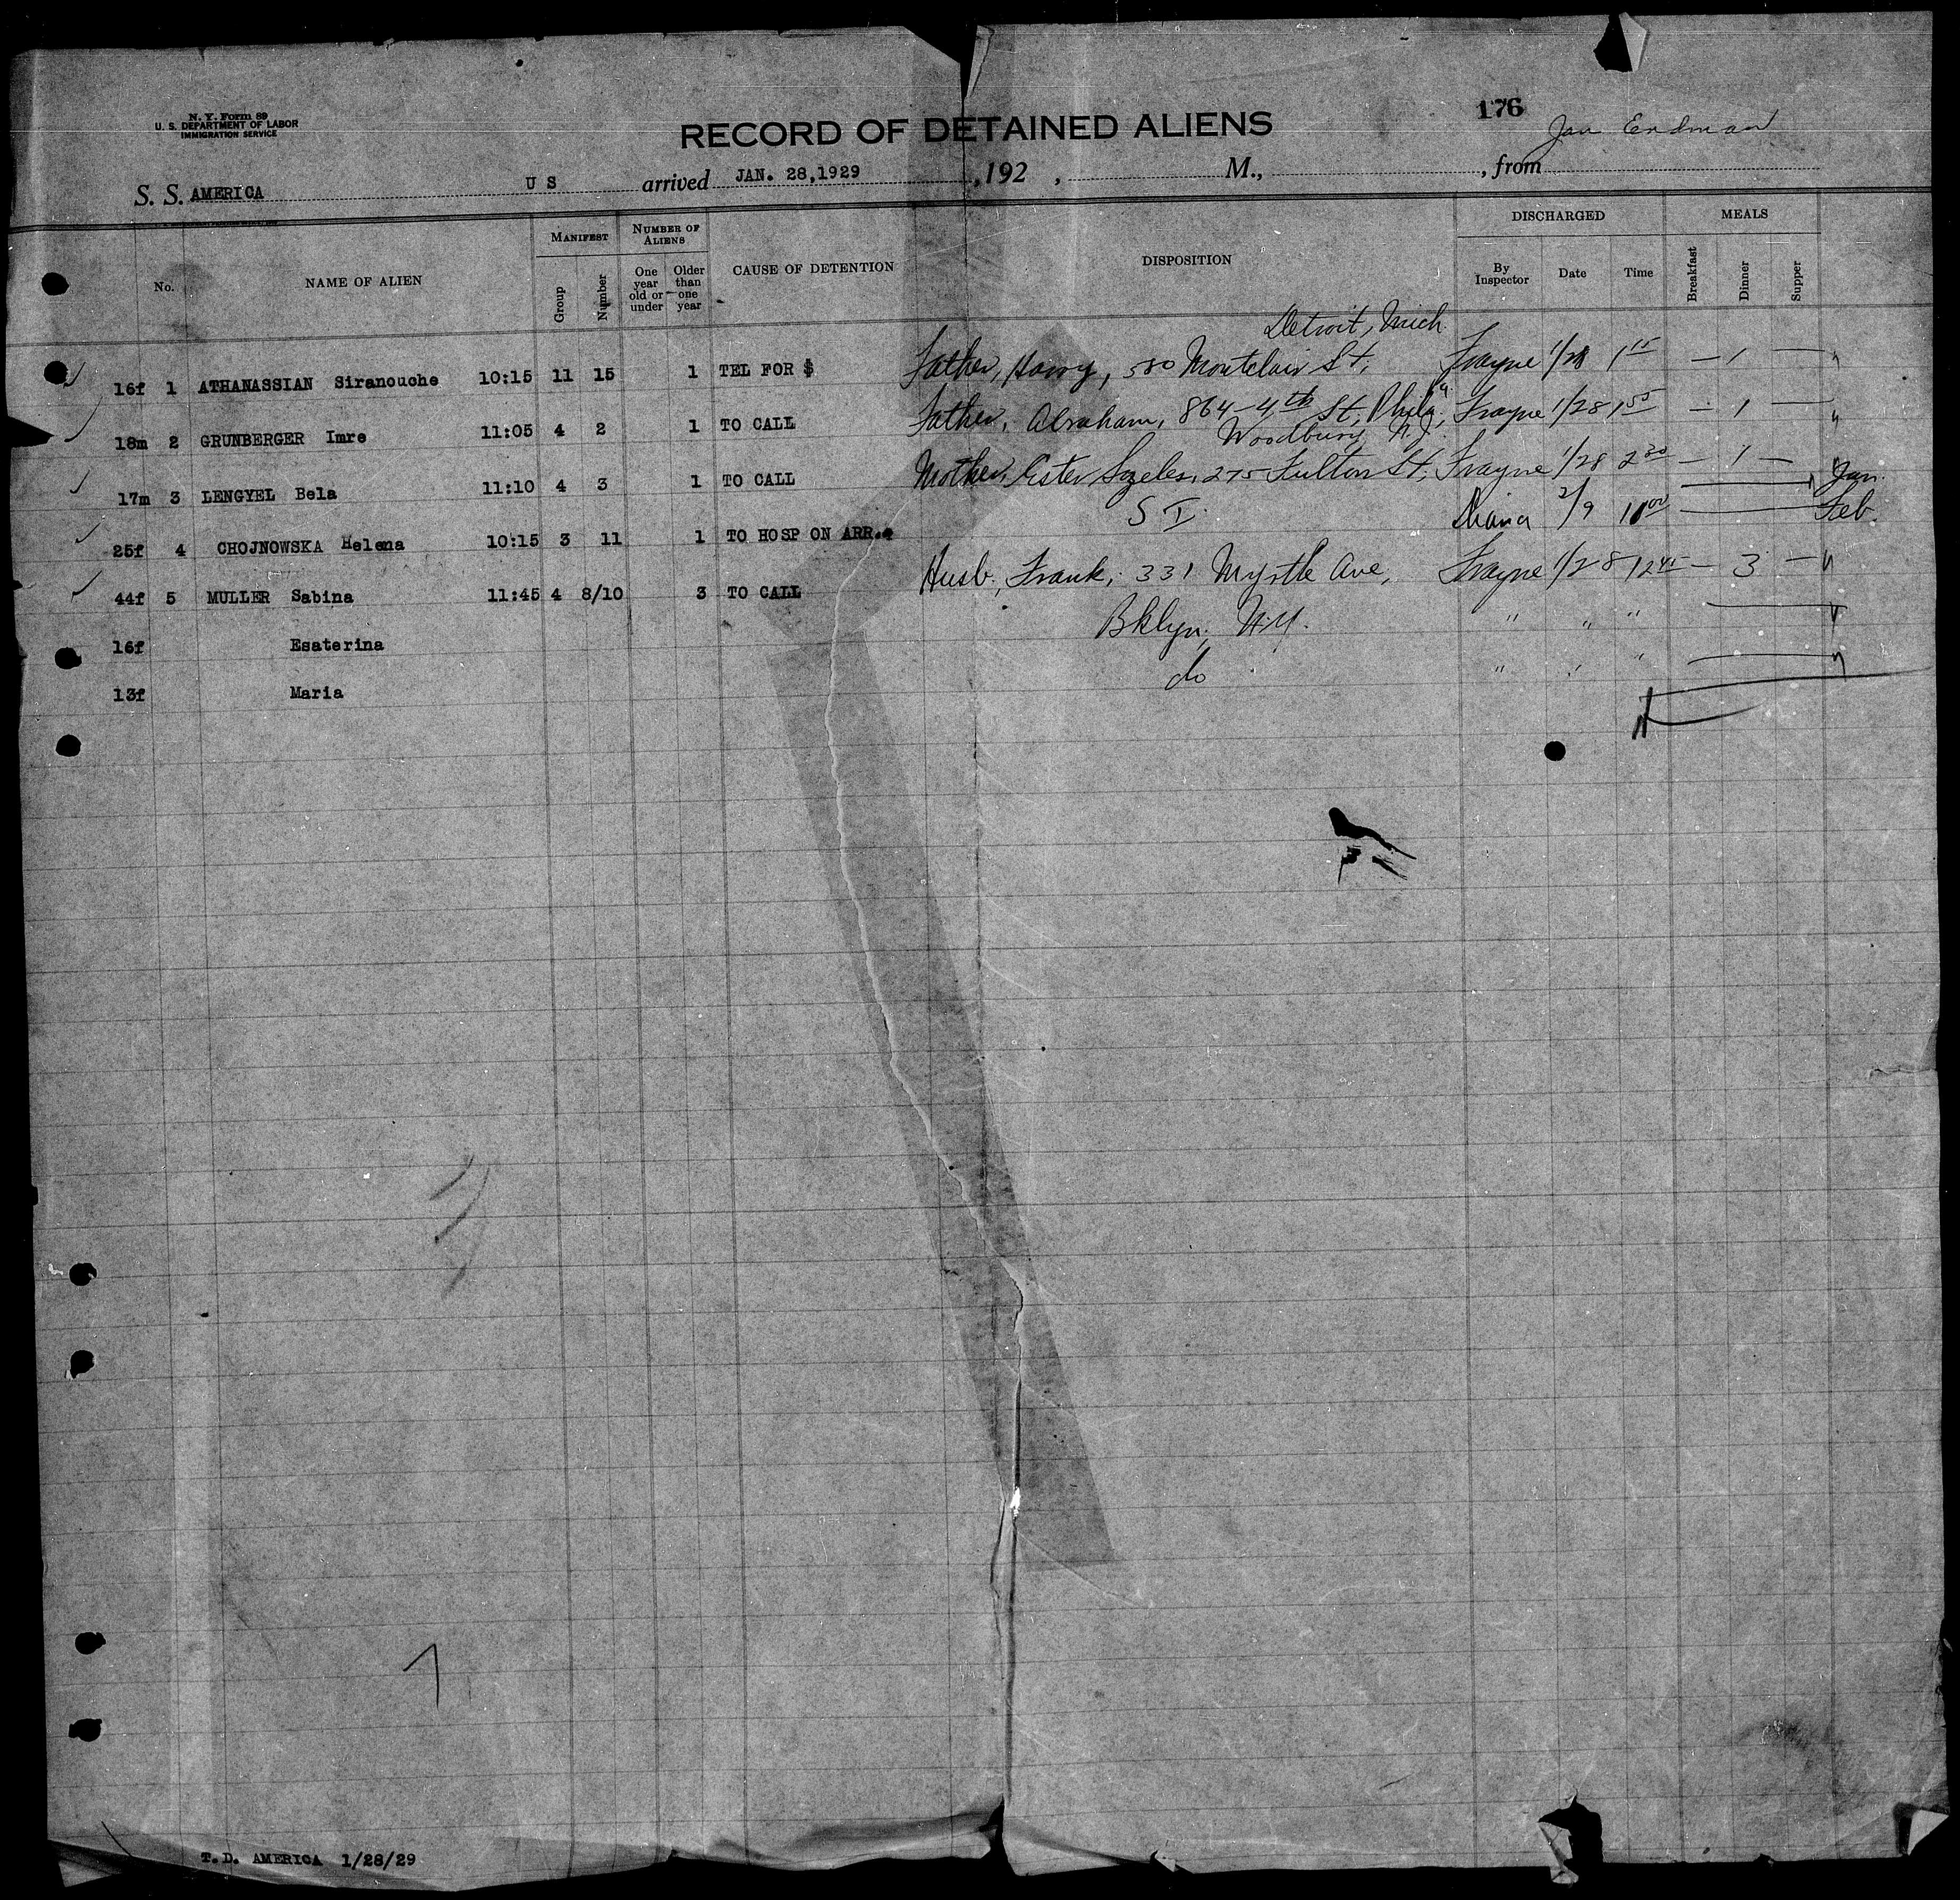 N. Y. Form 89
U. S. DEPARTMENT OF LABOR
IMMIGRATION SERVICE
176
RECORD OF DETAINED ALIENS
Jan Erdman
S. S. AMERICA U S arrived JAN. 28,1929 ,192 , M., , from
No. NAME OF ALIEN MANIFEST Group Number NUMBER OF ALIENS One year old or under Older than one year CAUSE OF DETENTION DISPOSITION DISCHARGED By Inspector Date Time MEALS Breakfast Dinner Supper
Detroit, Mich.
16f 1 ATHANASSIAN Siranouche 10:15 11 15 1 TEL FOR $ Father, Harry, 580 Montclair St, Frayne 1/28 1 15 — 1 — "
18m 2 GRUNBERGER Imre 11:05 4 2 1 TO CALL Father, Abraham, 864-4th St, Phila, Pa. Frayne 1/28 1 55 — 1 — "
Woodbury N.J.
17m 3 LENGYEL Bela 11:10 4 3 1 TO CALL Mother, Ester Szeles, 275 Fulton St, Frayne 1/28 2 30 — 1 — "
Jan.
25f 4 CHOJNOWSKA Helena 10:15 3 11 1 TO HOSP ON ARR. S I 2/9 11 00 Feb.
44f 5 MULLER Sabina 11:45 4 8/10 3 TO CALL Husb, Frank, 331 Myrtle Ave, Frayne 1/28 12 45 — 3 — "
16f Esaterina Bklyn, N.Y. " " " "
13f Maria do " " " "
T.D. AMERICA 1/28/29